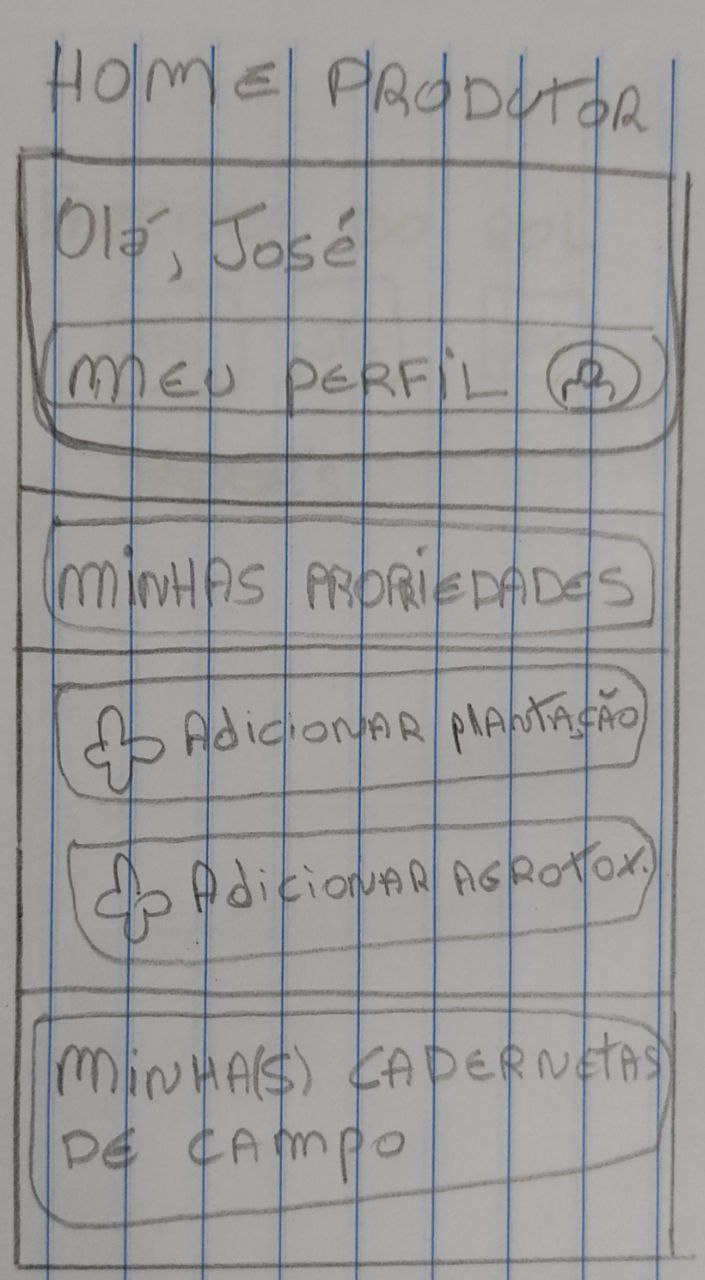 HOME PRODUTOR
Olá, José
MEU PERFIL
MINHAS PROPRIEDADES
Adicionar plantação
Adicionar AGROTOX.
MINHA(S) CADERNETAS
DE CAMPO